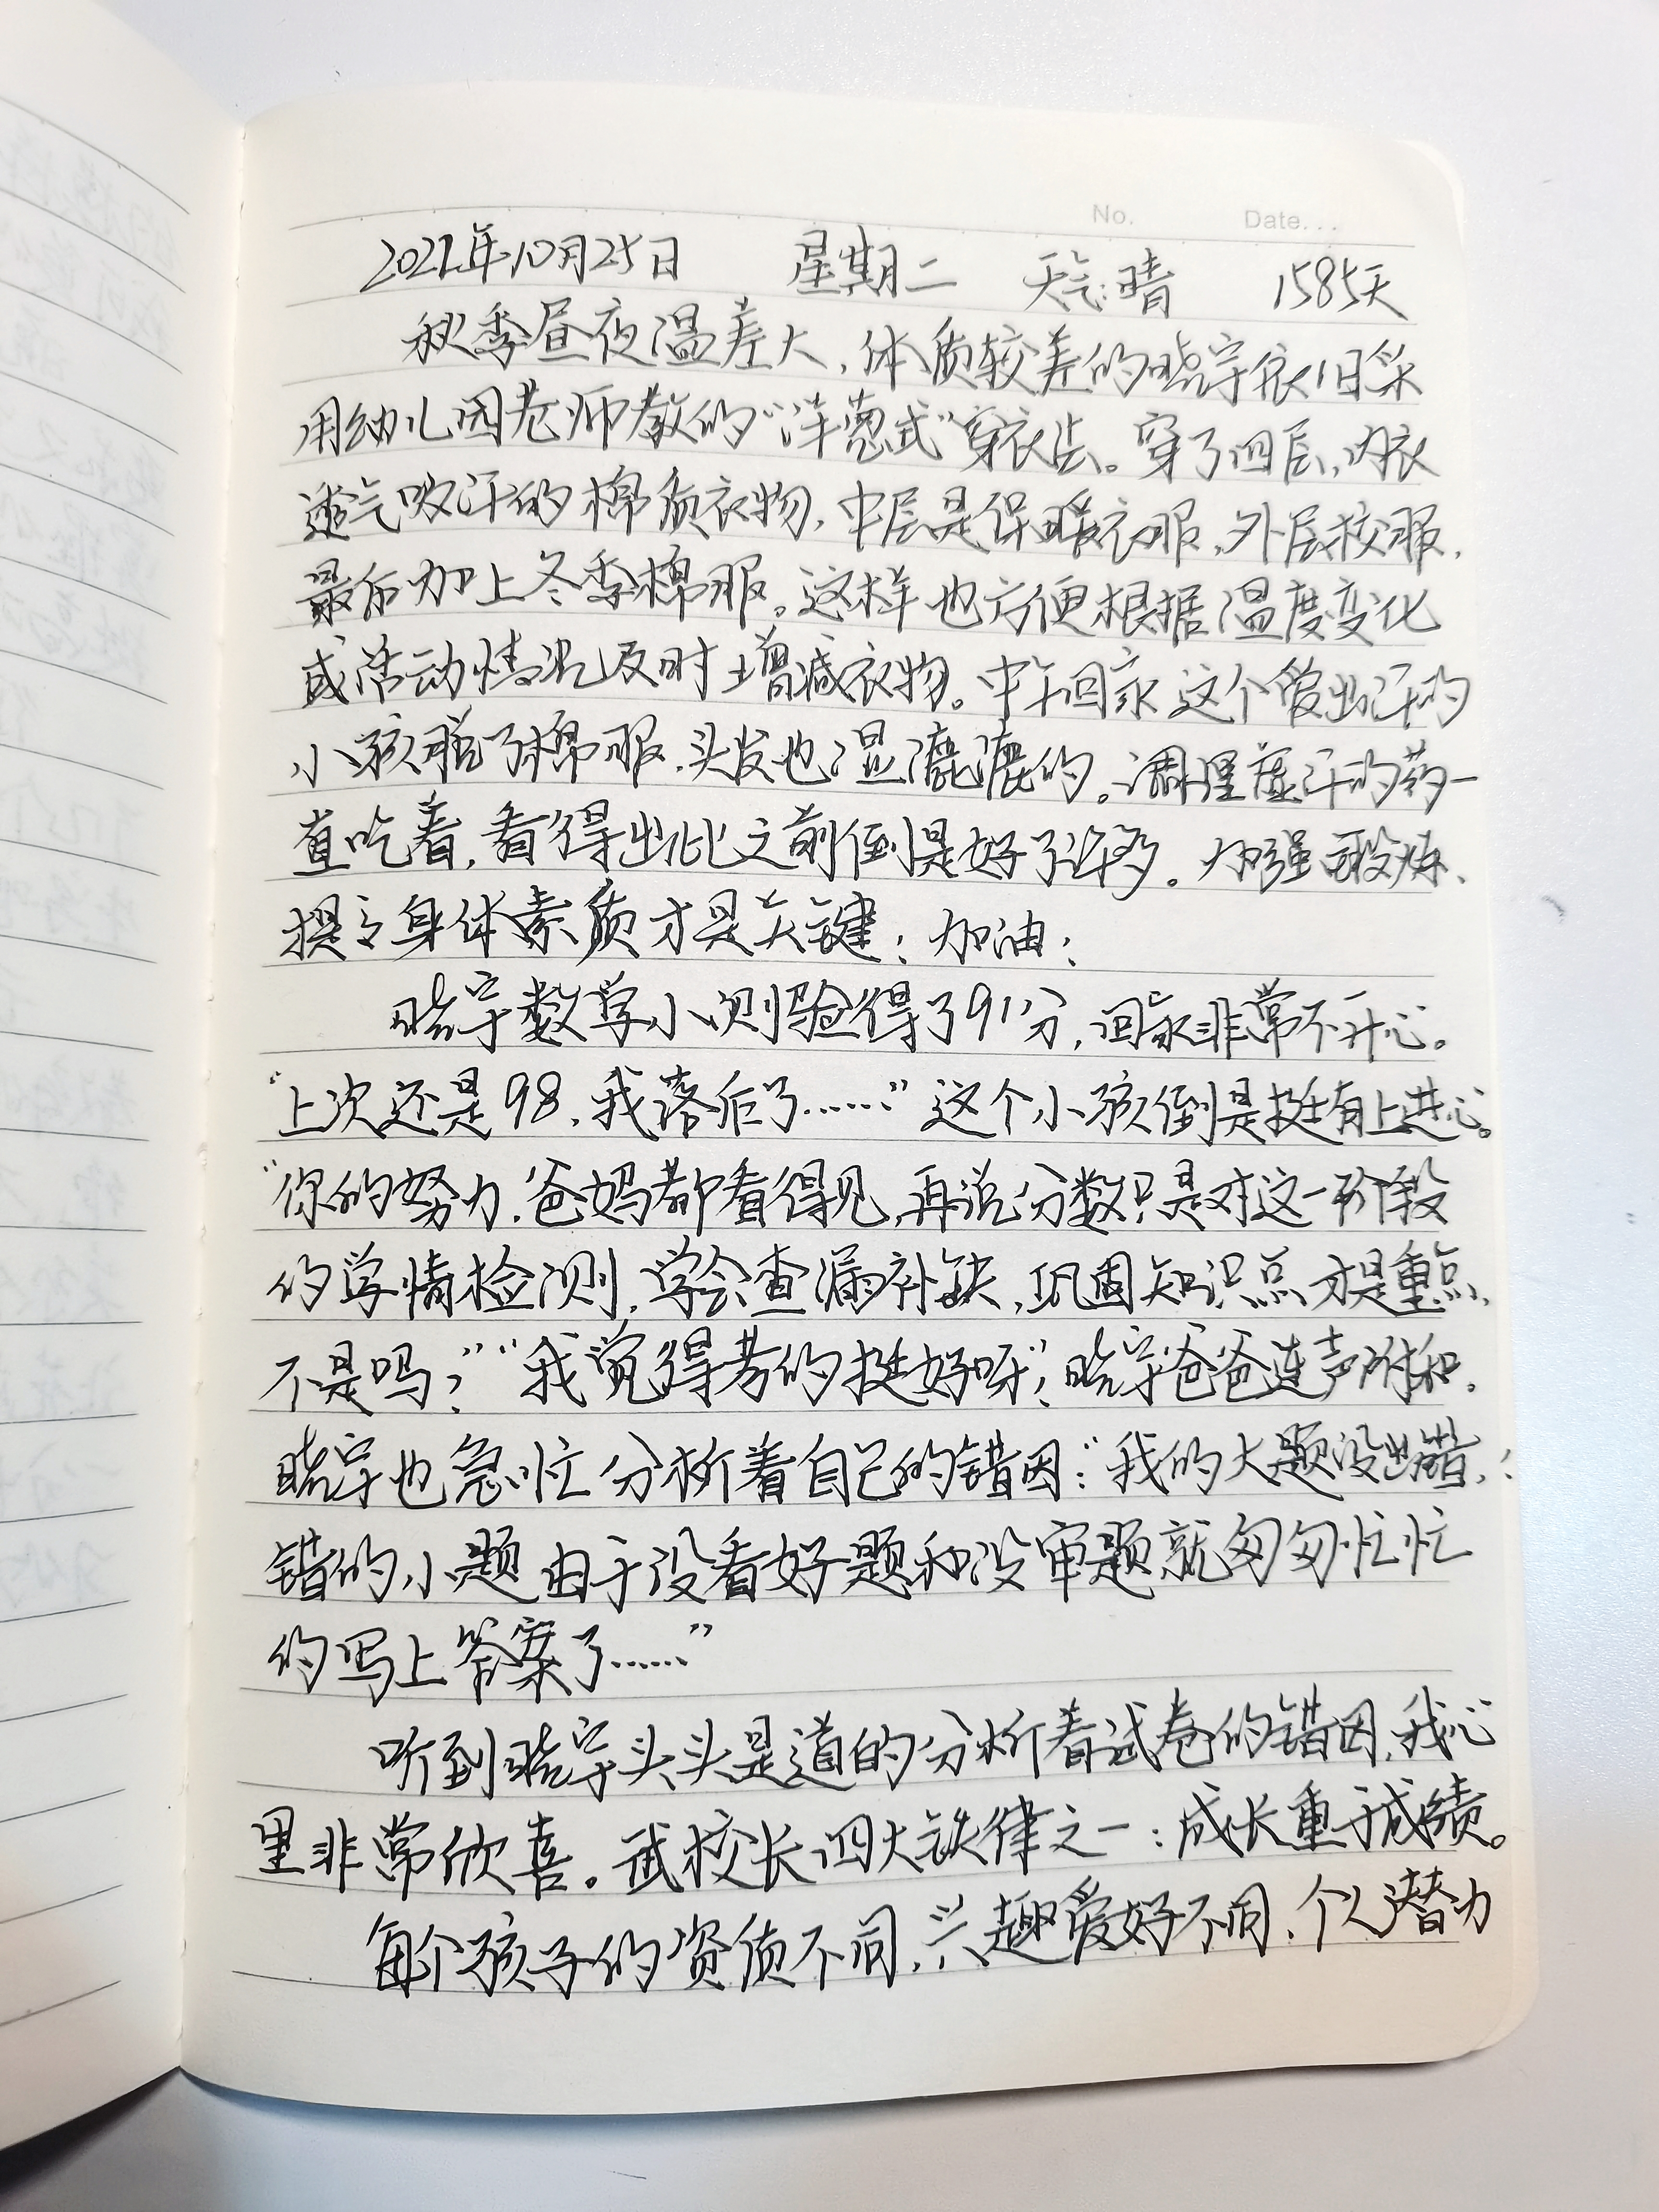 No. Date...
2022年10月25日 星期二 天气:晴 1585天
秋季昼夜温差大,体质较差的晓宇依旧采
用幼儿园老师教的“洋葱式”穿衣法。穿了四层,内衣
透气吸汗的棉质衣物,中层是保暖衣服,外层校服,
最后加上冬季棉服。这样也方便根据温度变化
或活动情况及时增减衣物。中午回家这个爱出汗的
小孩脱了棉服,头发也湿漉漉的。调理虚汗的药一
直吃着,看得出比之前倒是好了许多。加强锻炼、
提高身体素质才是关键!加油!
晓宇数学小测验得了91分,回家非常不开心。
“上次还是98,我落后了……”这个小孩倒是挺有上进心。
“你的努力,爸妈都看得见,再说分数只是对这一阶段
的学情检测,学会查漏补缺,巩固知识点才是重点,
不是吗?”“我觉得考的挺好呀!”晓宇爸爸连声附和。
晓宇也急忙分析着自己的错因:“我的大题没出错,
错的小题由于没看好题和没审题就匆匆忙忙
的写上答案了……”
听到晓宇头头是道的分析着试卷的错因,我心
里非常欣喜。武校长四大铁律之一:成长重于成绩。
每个孩子的资质不同,兴趣爱好不同,个人潜力